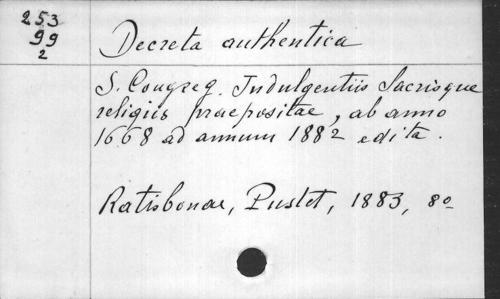 253
99
2
Decreta authentica
S. Congreg. Indulgentiis Sacrisque
religiis praepositae, ab anno
1668 ad annum 1882 edita.
Ratisbonae, Pustet, 1883, 8o